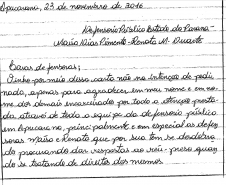 Apucarana, 23 de novembro de 2016
Defensoria Pública Estado do Paraná -
Mauro Dias Pimenta - Renata M. Duarte
Caras defensoras;
Venho por meio dessa carta não na intenção de pedi
nado, apenas para agradecer em meu nome e em no-
me dos demais encarcerados por toda a atenção presta-
da através de toda a equipe da defensoria pública
em Apucarana, principalmente e em especial as defen
soras e Renata que por sua tem se dedica
do procurando dar respostas ao réu-preso quan
do se tratando de direitos dos mesmos.